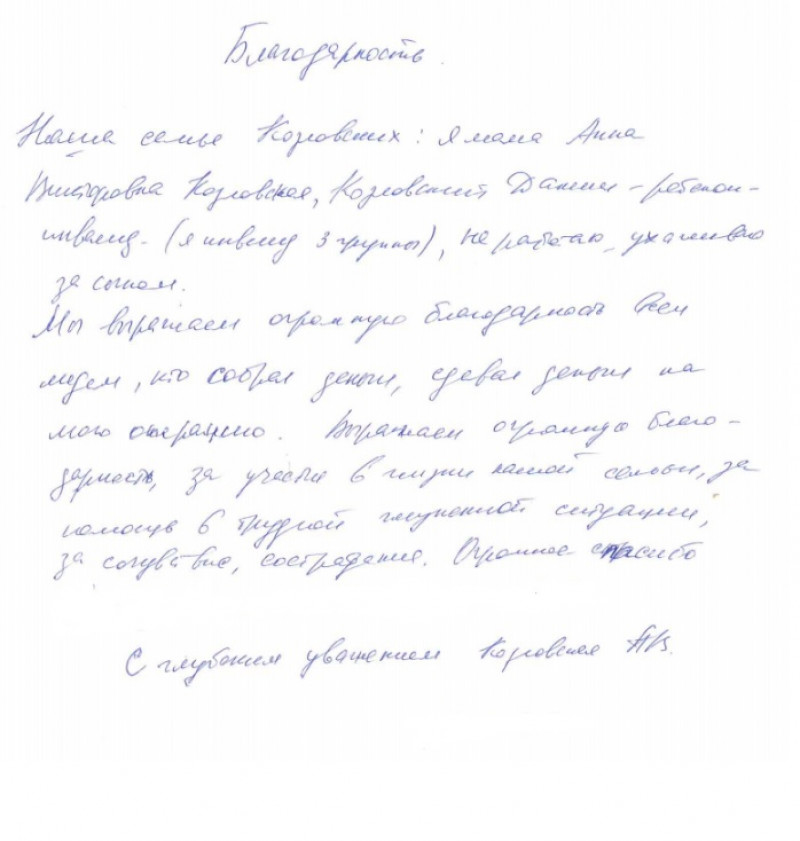 Благодарность.
Наша семья Козловских: я мама Анна
Викторовна Козловская, Козловский Данил - ребенок-
инвалид. (я инвалид 3 группы), не работаю, ухаживаю
за сыном.
Мы выражаем огромную благодарность всем
людям, кто собрал деньги, сдавал деньги на
мою операцию. Выражаем огромную благо-
дарность, за участие в жизни нашей семьи, за
помощь в трудной жизненной ситуации,
за сочувствие, сострадание. Огромное спасибо
С глубоким уважением Козловская АВ.